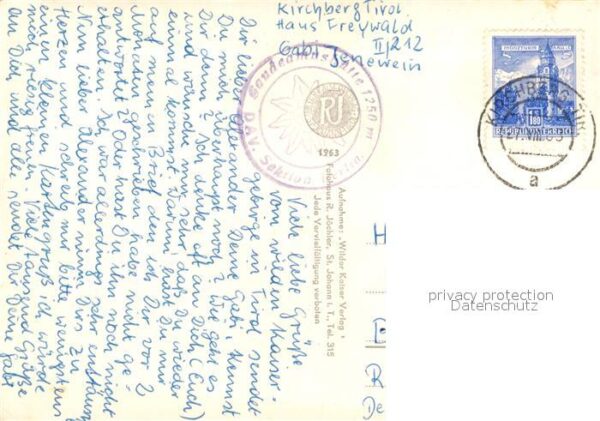 Kirchberg Tirol
Haus Freywald
II/212
Gabi
MÜNZTURM HALL
S 1.80
REPUBLIK ÖSTERREICH
KIRCHBERG, TIROL
a
1250 m
D.A.V. Sektion
RJ
1963
Aufnahme: "Wilder Kaiser Verlag"
Fotohaus R. Jöchler, St. Johann i. T., Tel. 315
Jede Vervielfältigung verboten
Viele liebe Grüße
vom wilden Kaiser-
gebirg in Tirol sendet
Dir lieber Alexander Deine Gabi. Kennst
Du mich überhaupt noch? Wie geht es
Dir denn? Ich denke oft an Dich (Euch)
und wünsche mir sehr, daß Du wieder
einmal kommst. Warum hast Du mir
auf meinen Brief den ich Dir vor 2
Monaten geschrieben habe nicht ge-
antwortet? Oder hast Du ihn noch nicht
erhalten? Ich war allerdings sehr enttäuscht
Nun lieber Alexander nimm es Dir zu
Herzen und schreibe mir bitte wenigstens
einen kleinen Kartengruß ich würde
mich riesig freun. Viele tausend Grüße
an Dich und alle sendet Dir Deine Gabi
De
privacy protection
Datenschutz